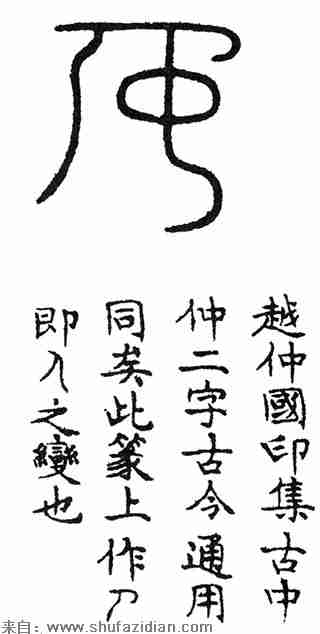 越仲國印集古中
仲二字古今通用
同矣此篆上作刀
即人之變也
来自：www.shufazidian.com